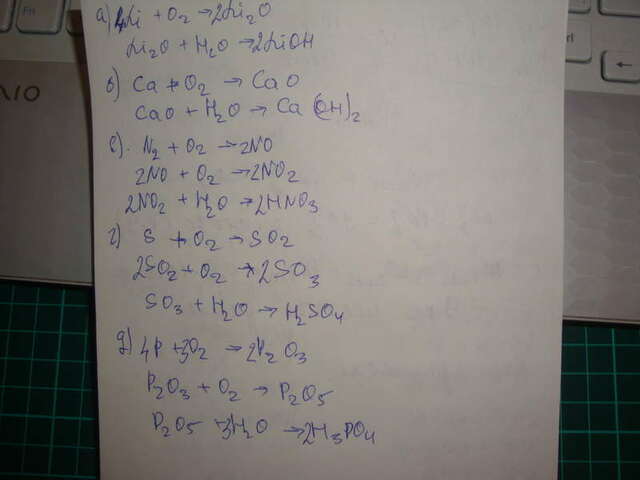 а) 4Li + O₂ → 2Li₂O
Li₂O + H₂O → 2LiOH
б) Ca + O₂ → CaO
CaO + H₂O → Ca(OH)₂
в). N₂ + O₂ → 2NO
2NO + O₂ → 2NO₂
2NO₂ + H₂O → 2HNO₃
г) S + O₂ → SO₂
2SO₂ + O₂ → 2SO₃
SO₃ + H₂O → H₂SO₄
д) 4P + 3O₂ → 2P₂O₃
P₂O₃ + O₂ → P₂O₅
P₂O₅ + 3H₂O → 2H₃PO₄
AIO